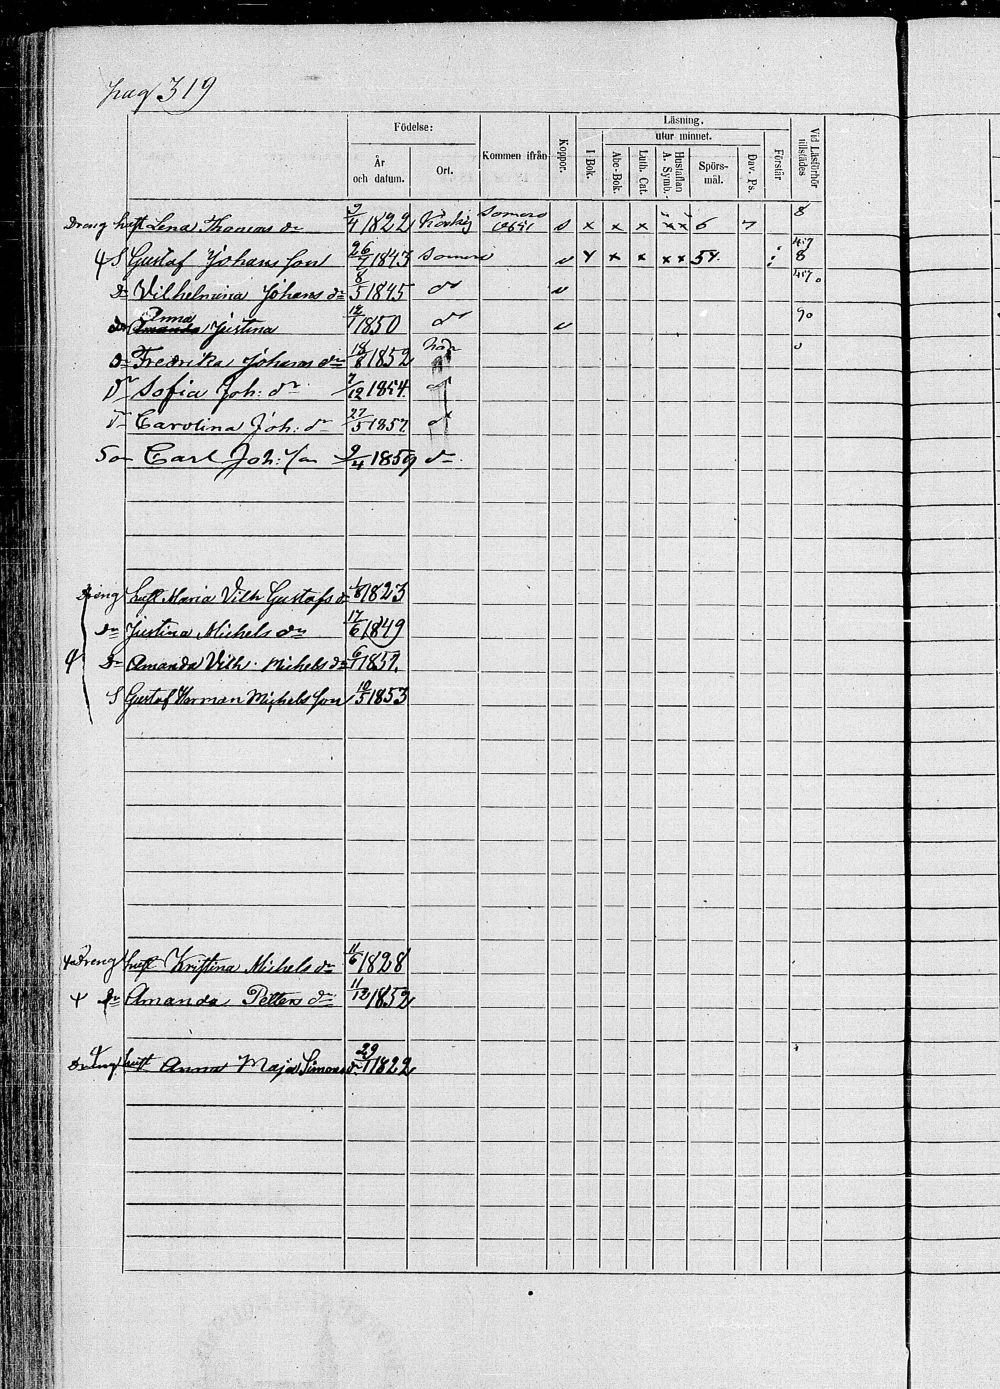 pag 319
Läsning.
Födelse:
utur minnet.
År och datum.
Ort.
Kommen ifrån
Koppor.
I Bok.
Abc-Bok.
Luth. Cat.
Hustaflan A. Symb.
Spörsmål.
Dav. Ps.
Förstår
Vid Läsförhör tillstädes
Dreng hust Lena Thomas dr 9/4 1822 Somero 1851 s x x x x x 6 7 8
S Gustaf Johans son 26/7 1843 Somero v Y x x x x 54. 457 8
Dr Vilhelmina Johans dr 8/5 1845 do v 457
dr Anna Amanda Justina 12/1 1850 do v 90
Dr Fredrika Johans dr 18/8 1852
Dr Sofia Joh: dr 7/12 1854. do
Dr Carolina Joh: dr 27/5 1857. do
Son Carl Joh: son 9/4 1859 do
Dreng hust Maria Vilh Gustafs dr 1/8 1823
dr Justina Michels dr 17/6 1849
Dr Amanda Vilh. Michels dr 6/1 1851.
S Gustaf Herman Michels son 10/5 1853
Dreng hust Kristina Michels dr 11/6 1828
dr Amanda Petters dr 11/12 1852
Dreng hust Anna Maja Simons dr 29/1 1822